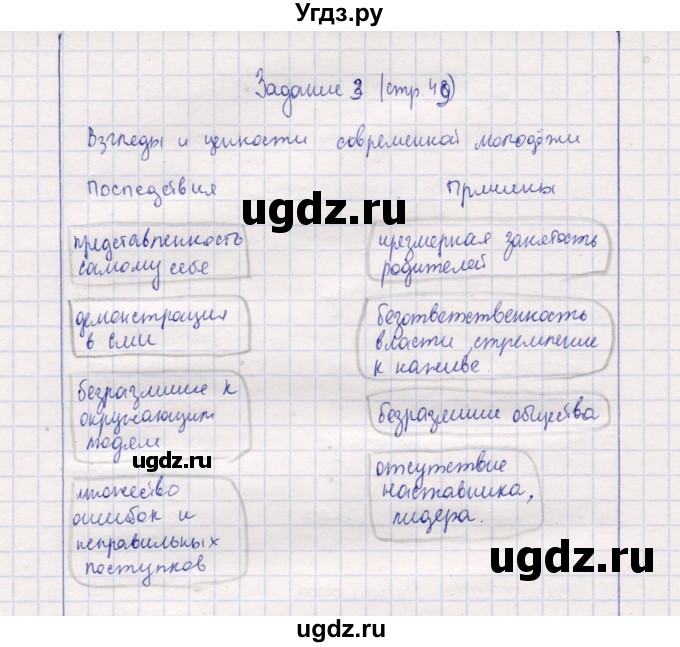 Угдз.ру
Задание 3 (стр. 49)
Взгляды и ценности современной молодёжи
Последствия Причины
ugdz.ru
предствленность
самому себе
чрезмерная занятость
родителей
демонстрация
в сми
безответственность
власти стремление
к наживе.
безразличие к
окружающим
людям
ugdz.ru
безразличие общества
множество
ошибок и
неправильных
поступков
отсутствие
наставника,
лидера.
ugdz.ru
ugdz.ru